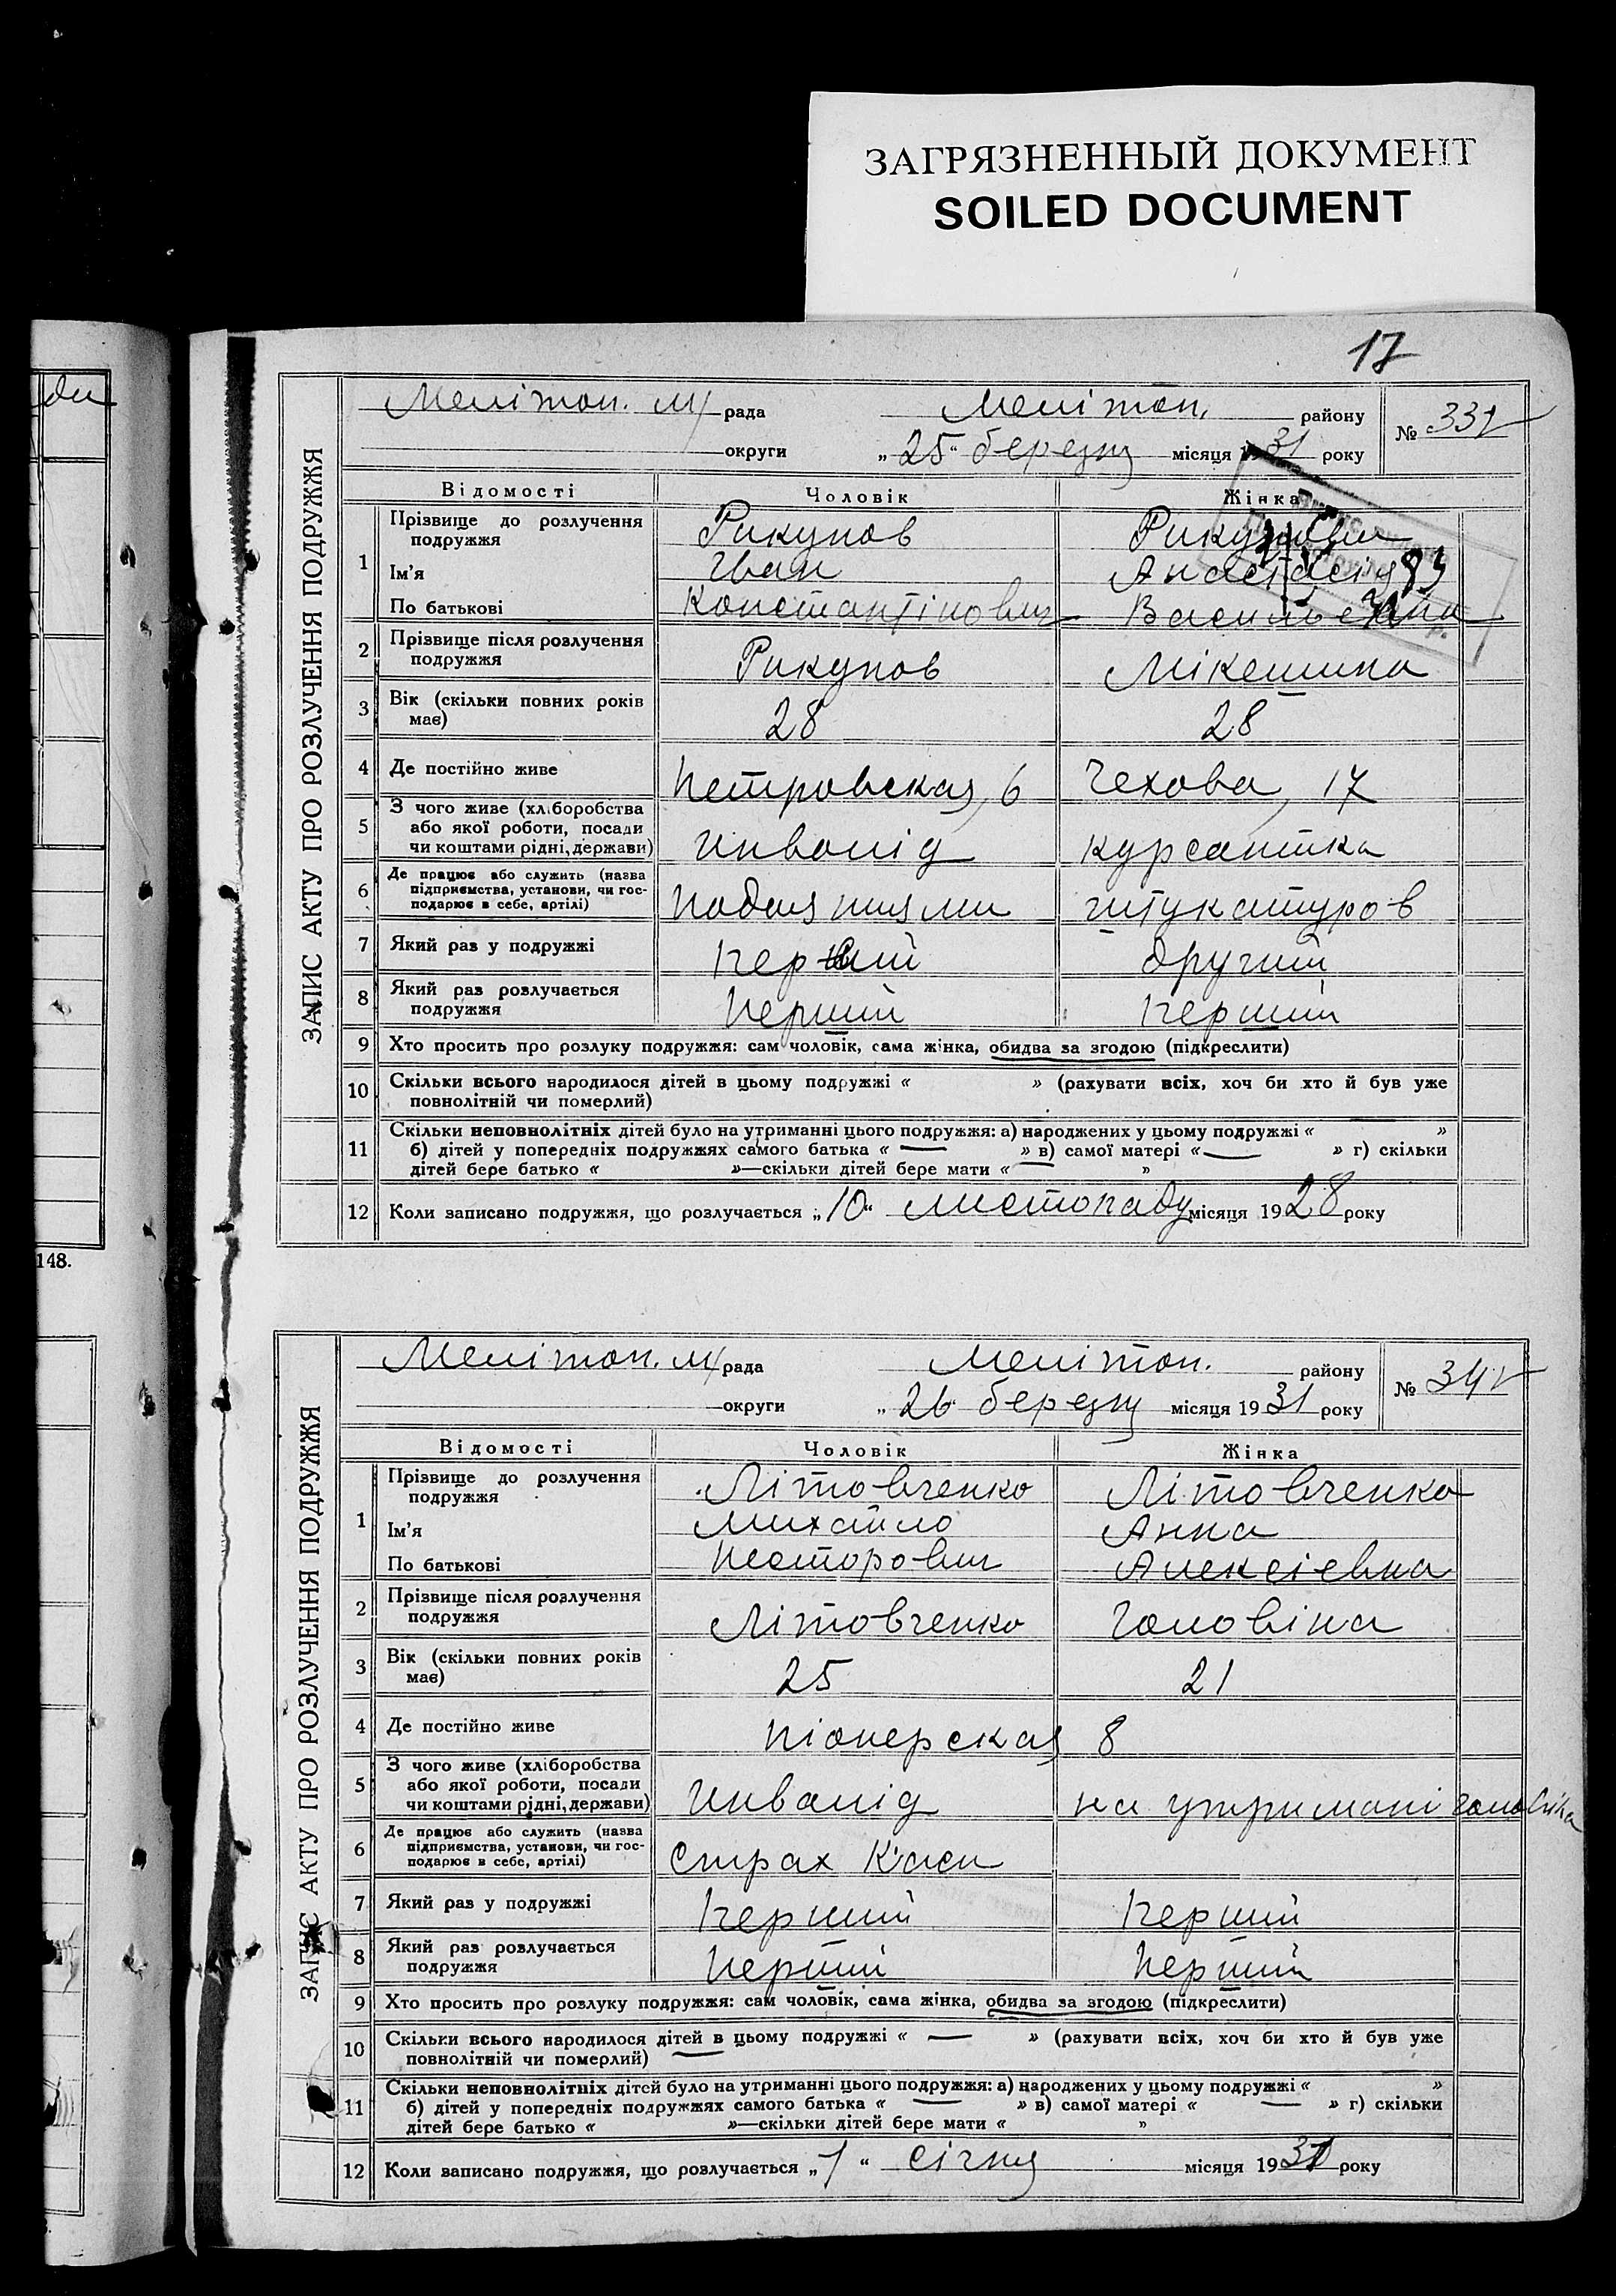 ЗАГРЯЗНЕННЫЙ ДОКУМЕНТ
SOILED DOCUMENT
17
148.
ЗАПИС АКТУ ПРО РОЗЛУЧЕННЯ ПОДРУЖЖЯ
Меліто­п. м/ рада Меліто­п. району № 33
округи „25“ березня місяця 1931 року
Відомості Чоловік Жінка
1 Прізвище до розлучення подружжя Рикунов
Ім'я Іван Анастасія
По батькові Константінович
2 Прізвище після розлучення подружжя Рикунов Мікешина
3 Вік (скільки повних років має) 28 28
4 Де постійно живе Петровская, 6 Чехова, 17
5 З чого живе (хліборобства або якої роботи, посади чи коштами рідні, держави) Инвалід курсантка
6 Де працює або служить (назва підприємства, установи, чи господарює в себе, артілі) штукатуров
7 Який раз у подружжі Перший другий
8 Який раз розлучається подружжя Перший Перший
9 Хто просить про розлуку подружжя: сам чоловік, сама жінка, обидва за згодою (підкреслити)
10 Скільки всього народилося дітей в цьому подружжі « » (рахувати всіх, хоч би хто й був уже
повнолітній чи померлий)
11 Скільки неповнолітніх дітей було на утриманні цього подружжя: а) народжених у цьому подружжі « »
б) дітей у попередніх подружжях самого батька « — » в) самої матері « — » г) скільки
дітей бере батько « »—скільки дітей бере мати « »
12 Коли записано подружжя, що розлучається „10“ листопаду місяця 1928 року
ЗАПИС АКТУ ПРО РОЗЛУЧЕННЯ ПОДРУЖЖЯ
Меліто­п. м/ рада Меліто­п. району № 34
округи „26 березня місяця 1931 року
Відомості Чоловік Жінка
1 Прізвище до розлучення подружжя Літовченко Літовченко
Ім'я Михайло Анна
По батькові Несторович Алексієвна
2 Прізвище після розлучення подружжя Літовченко Головіна
3 Вік (скільки повних років має) 25 21
4 Де постійно живе Піонерская 8
5 З чого живе (хліборобства або якої роботи, посади чи коштами рідні, держави) Инвалід на утримані чоловіка
6 Де працює або служить (назва підприємства, установи, чи господарює в себе, артілі) Страх Каси
7 Який раз у подружжі Перший Перший
8 Який раз розлучається подружжя Перший Перший
9 Хто просить про розлуку подружжя: сам чоловік, сама жінка, обидва за згодою (підкреслити)
10 Скільки всього народилося дітей в цьому подружжі « — » (рахувати всіх, хоч би хто й був уже
повнолітній чи померлий)
11 Скільки неповнолітніх дітей було на утриманні цього подружжя: а) народжених у цьому подружжі « »
б) дітей у попередніх подружжях самого батька « — » в) самої матері « — » г) скільки
дітей бере батько « »—скільки дітей бере мати « »
12 Коли записано подружжя, що розлучається „1“ січня місяця 1931 року